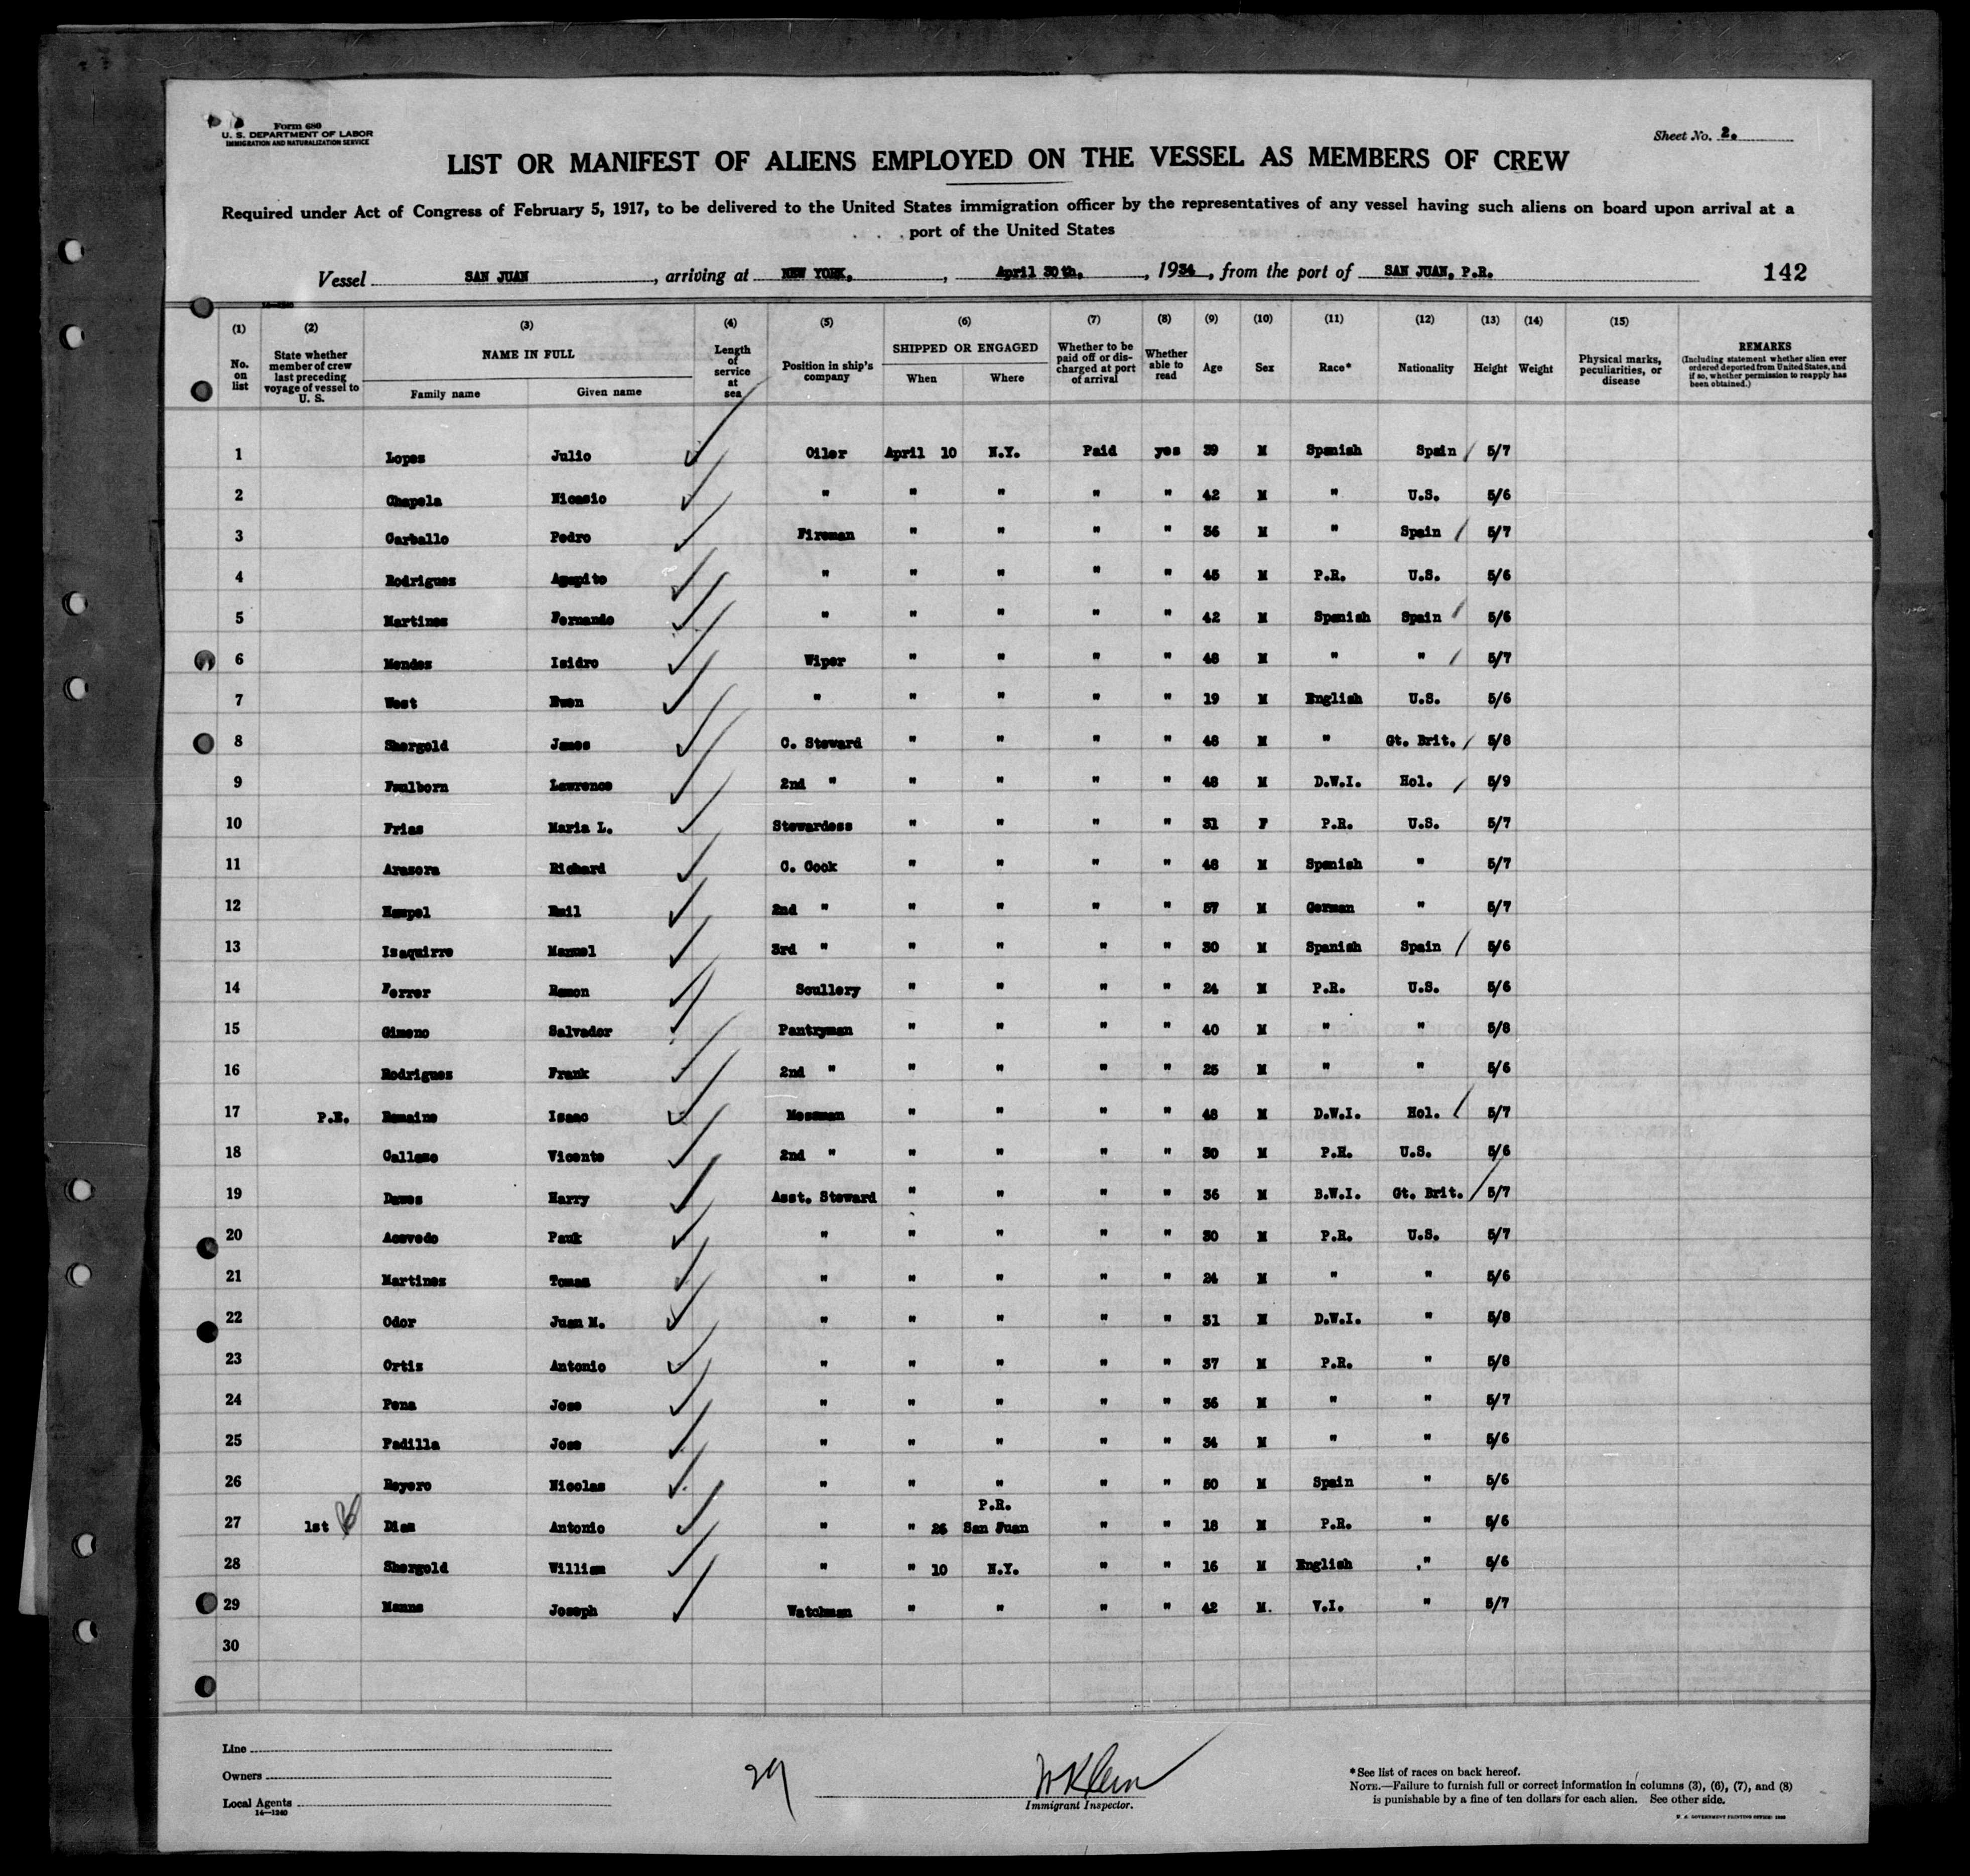 Form 680
U. S. DEPARTMENT OF LABOR
IMMIGRATION AND NATURALIZATION SERVICE
Sheet No. 2.
LIST OR MANIFEST OF ALIENS EMPLOYED ON THE VESSEL AS MEMBERS OF CREW
Required under Act of Congress of February 5, 1917, to be delivered to the United States immigration officer by the representatives of any vessel having such aliens on board upon arrival at a
port of the United States
Vessel SAN JUAN, arriving at NEW YORK, , April 30th, , 1934, from the port of SAN JUAN, P.R. 142
(1) (2) (3) (4) (5) (6) (7) (8) (9) (10) (11) (12) (13) (14) (15)
No. on list
State whether member of crew last preceding voyage of vessel to U. S.
NAME IN FULL
Family name Given name
Length of service at sea
Position in ship's company
SHIPPED OR ENGAGED
When Where
Whether to be paid off or discharged at port of arrival
Whether able to read
Age Sex Race* Nationality Height Weight
Physical marks, peculiarities, or disease
REMARKS
(Including statement whether alien ever ordered deported from United States, and if so, whether permission to reapply has been obtained.)
1 Lopez Julio Oiler April 10 N.Y. Paid yes 39 M Spanish Spain 5/7
2 Chapela Nicasio " " " " " 42 M " U.S. 5/6
3 Carballo Pedro Fireman " " " " 36 M " Spain 5/7
4 Rodriguez Agapito " " " " " 45 M P.R. U.S. 5/6
5 Martinez Fernando " " " " " 42 M Spanish Spain 5/6
6 Mendez Isidro Wiper " " " " 48 M " " 5/7
7 West Ewen " " " " " 19 M English U.S. 5/6
8 Shergold James C. Steward " " " " 48 M " Gt. Brit. 5/8
9 Faulborn Lawrence 2nd " " " " " 48 M D.W.I. Hol. 5/9
10 Frias Maria L. Stewardess " " " " 31 F P.R. U.S. 5/7
11 Arasora Richard C. Cook " " " " 48 M Spanish " 5/7
12 Hempel Emil 2nd " " " " " 57 M German " 5/7
13 Izaquirre Manuel 3rd " " " " " 30 M Spanish Spain 5/6
14 Ferrer Ramon Scullery " " " " 24 M P.R. U.S. 5/6
15 Gimeno Salvador Pantryman " " " " 40 M " " 5/8
16 Rodriguez Frank 2nd " " " " " 25 M " " 5/6
17 P.R. Romaine Isaac Messman " " " " 48 M D.W.I. Hol. 5/7
18 Callazo Vicente 2nd " " " " " 30 M P.R. U.S. 5/6
19 Dawes Harry Asst. Steward " " " " 36 M B.W.I. Gt. Brit. 5/7
20 Acevedo Pauk " " " " " 30 M P.R. U.S. 5/7
21 Martinez Tomas " " " " " 24 M " " 5/6
22 Odor Juan M. " " " " " 31 M D.W.I. " 5/8
23 Ortiz Antonio " " " " " 37 M P.R. " 5/8
24 Pena Jose " " " " " 36 M " " 5/7
25 Padilla Jose " " " " " 34 M " " 5/6
26 Reyero Nicolas " " " " " 50 M Spain " 5/6
27 1st Diaz Antonio " " 26 P.R. San Juan " " 18 M P.R. " 5/6
28 Shergold William " " 10 N.Y. " " 16 M English " 5/6
29 Manns Joseph Watchman " " " " 42 M. V.I. " 5/7
30
Line
Owners
Local Agents
14—1240
29
W Klein
Immigrant Inspector.
*See list of races on back hereof.
NOTE.—Failure to furnish full or correct information in columns (3), (6), (7), and (8)
is punishable by a fine of ten dollars for each alien. See other side.